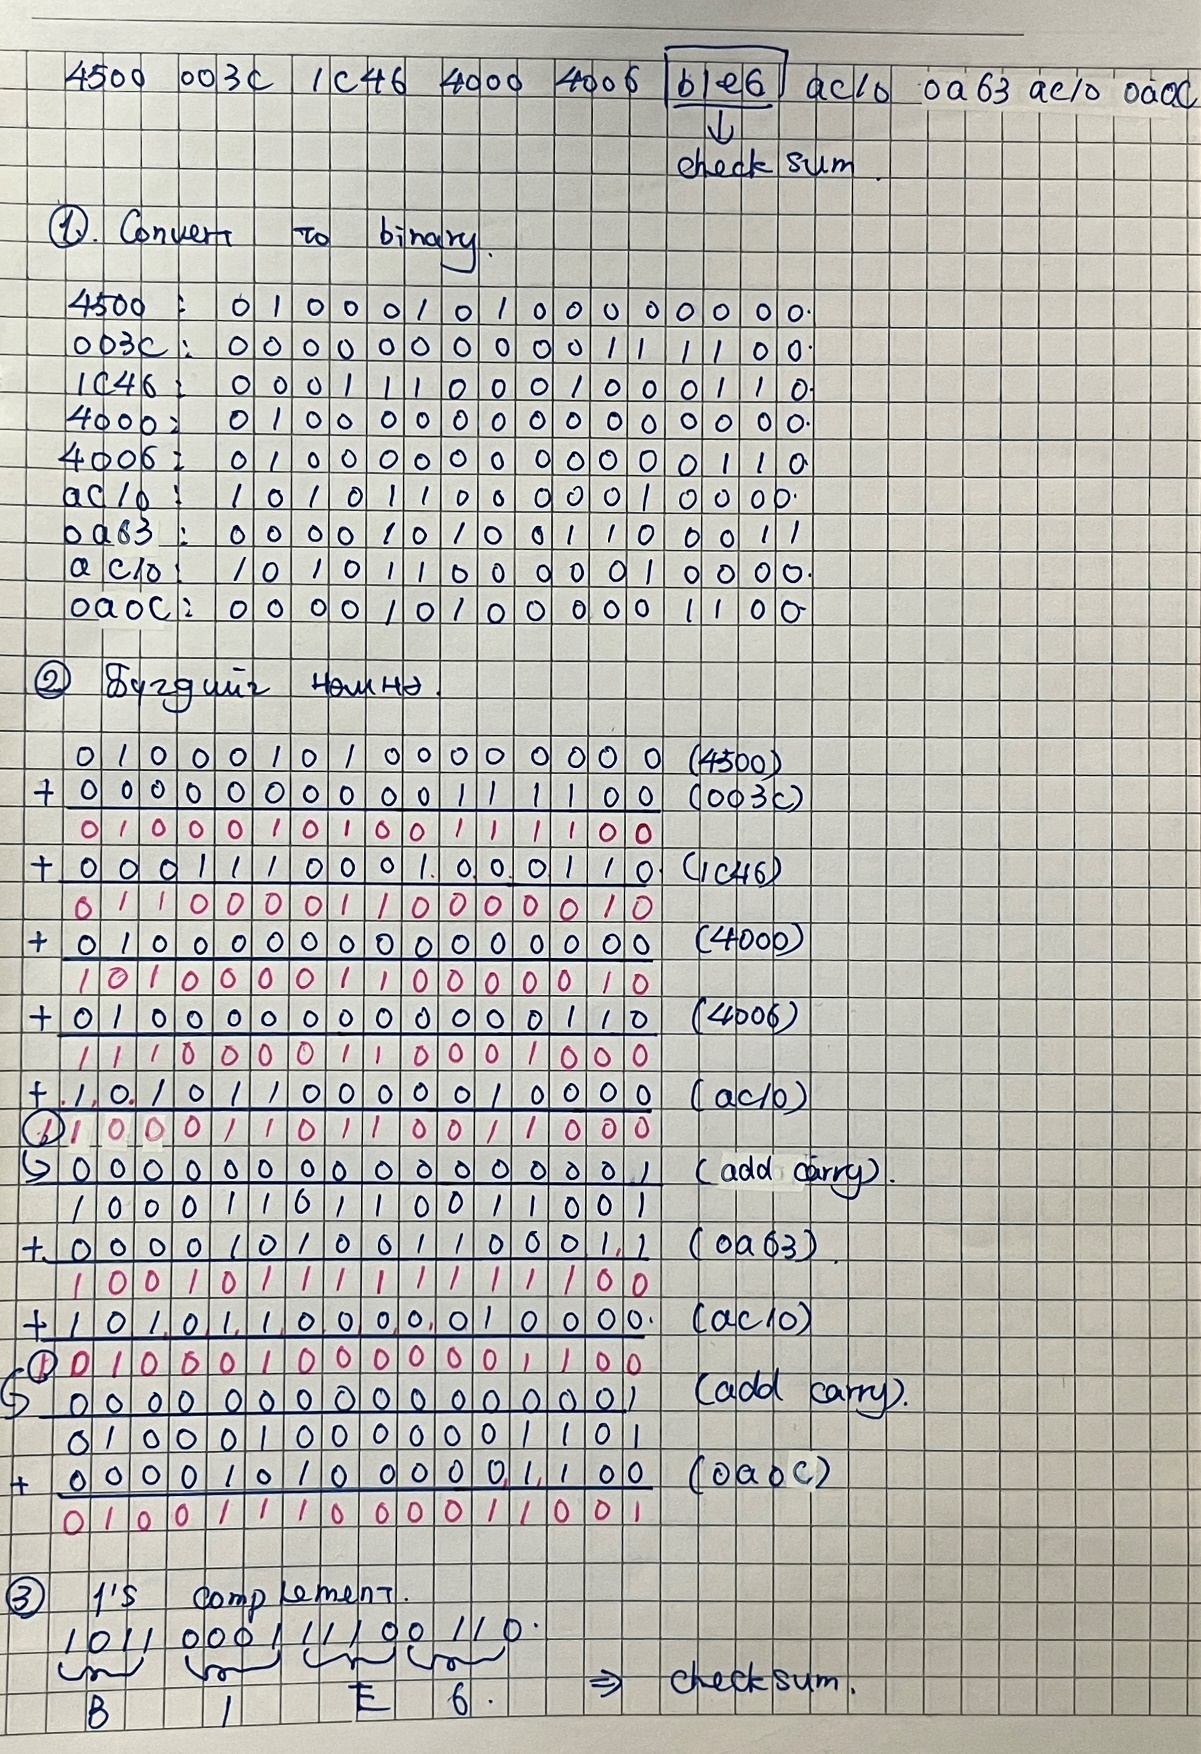 4500 003C 1C46 4000 4006 b1e6 ac10 0a63 ac10 0a0C
↓
check sum.
①. Convert to binary.
4500 : 0 1 0 0 0 1 0 1 0 0 0 0 0 0 0 0.
003C : 0 0 0 0 0 0 0 0 0 0 1 1 1 1 0 0.
1C46 : 0 0 0 1 1 1 0 0 0 1 0 0 0 1 1 0.
4000 : 0 1 0 0 0 0 0 0 0 0 0 0 0 0 0 0.
4006 : 0 1 0 0 0 0 0 0 0 0 0 0 0 1 1 0
ac10 : 1 0 1 0 1 1 0 0 0 0 0 1 0 0 0 0.
0a63 : 0 0 0 0 1 0 1 0 0 1 1 0 0 0 1 1
ac10 : 1 0 1 0 1 1 0 0 0 0 0 1 0 0 0 0.
0a0C : 0 0 0 0 1 0 1 0 0 0 0 0 1 1 0 0
② Бүгдийг нэмнэ.
0 1 0 0 0 1 0 1 0 0 0 0 0 0 0 0 (4500)
+ 0 0 0 0 0 0 0 0 0 0 1 1 1 1 0 0 (003c)
0 1 0 0 0 1 0 1 0 0 1 1 1 1 0 0
+ 0 0 0 1 1 1 0 0 0 1. 0 0. 0 1 1 0. (1c46)
0 1 1 0 0 0 0 1 1 0 0 0 0 0 1 0
+ 0 1 0 0 0 0 0 0 0 0 0 0 0 0 0 0 (4000)
1 0 1 0 0 0 0 1 1 0 0 0 0 0 1 0
+ 0 1 0 0 0 0 0 0 0 0 0 0 0 1 1 0 (4006)
1 1 1 0 0 0 0 1 1 0 0 0 1 0 0 0
+ .1. 0. 1 0 1 1 0 0 0 0 0 1 0 0 0 0 (ac10)
① 1 0 0 0 1 1 0 1 1 0 0 1 1 0 0 0
↳ 0 0 0 0 0 0 0 0 0 0 0 0 0 0 0 1 (add carry).
1 0 0 0 1 1 0 1 1 0 0 1 1 0 0 1
+ 0 0 0 0 1 0 1 0 0 1 1 0 0 0 1. 1 (0a63)
1 0 0 1 0 1 1 1 1 1 1 1 1 1 0 0
+ 1 0 1. 0 1. 1. 0 0 0. 0. 0 1 0 0 0 0. (ac10)
① 0 1 0 0 0 1 0 0 0 0 0 0 1 1 0 0
↳ 0 0 0 0 0 0 0 0 0 0 0 0 0 0 0 1 (add carry).
0 1 0 0 0 1 0 0 0 0 0 0 1 1 0 1
+ 0 0 0 0 1 0 1 0 0 0 0 0. 1. 1 0 0 (0a0C)
0 1 0 0 1 1 1 0 0 0 0 1 1 0 0 1
③ 1's complement.
1011 0001 1110 0110.
B 1 E 6. ⇒ checksum.